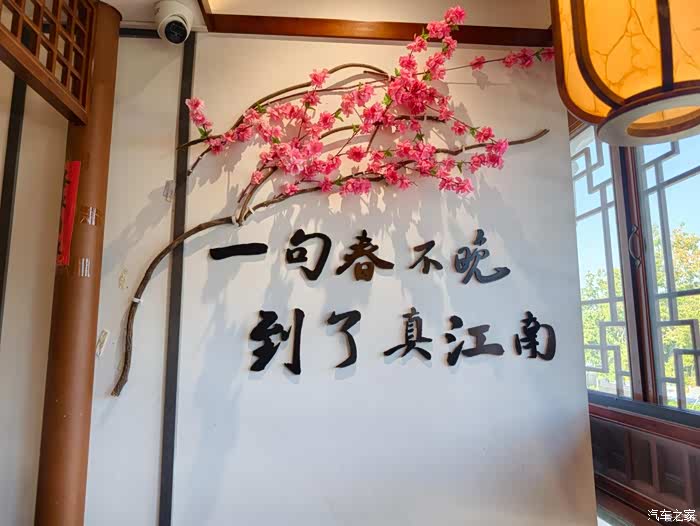 一句春不晚
到了真江南
汽车之家